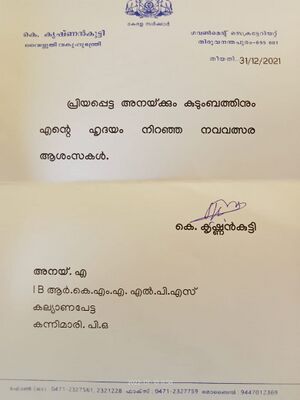 കേരള സർക്കാർ
കെ. കൃഷ്ണൻകുട്ടി
വൈദ്യുതി വകുപ്പുമന്ത്രി
ഗവൺമെന്റ് സെക്രട്ടേറിയറ്റ്
തിരുവനന്തപുരം-695 001
തീയതി. 31/12/2021
പ്രിയപ്പെട്ട അനയ്ക്കും കുടുംബത്തിനും
എന്റെ ഹൃദയം നിറഞ്ഞ നവവത്സര
ആശംസകൾ.
കെ. കൃഷ്ണൻകുട്ടി
അനയ്. എ
I B ആർ.കെ.എം.എ. എൽ.പി.എസ്
കല്യാണപേട്ട
കന്നിമാരി. പി.ഒ
0471-2327561, 2321228 ഫാക്സ് : 0471-2327759 മൊബൈൽ : 9447012369